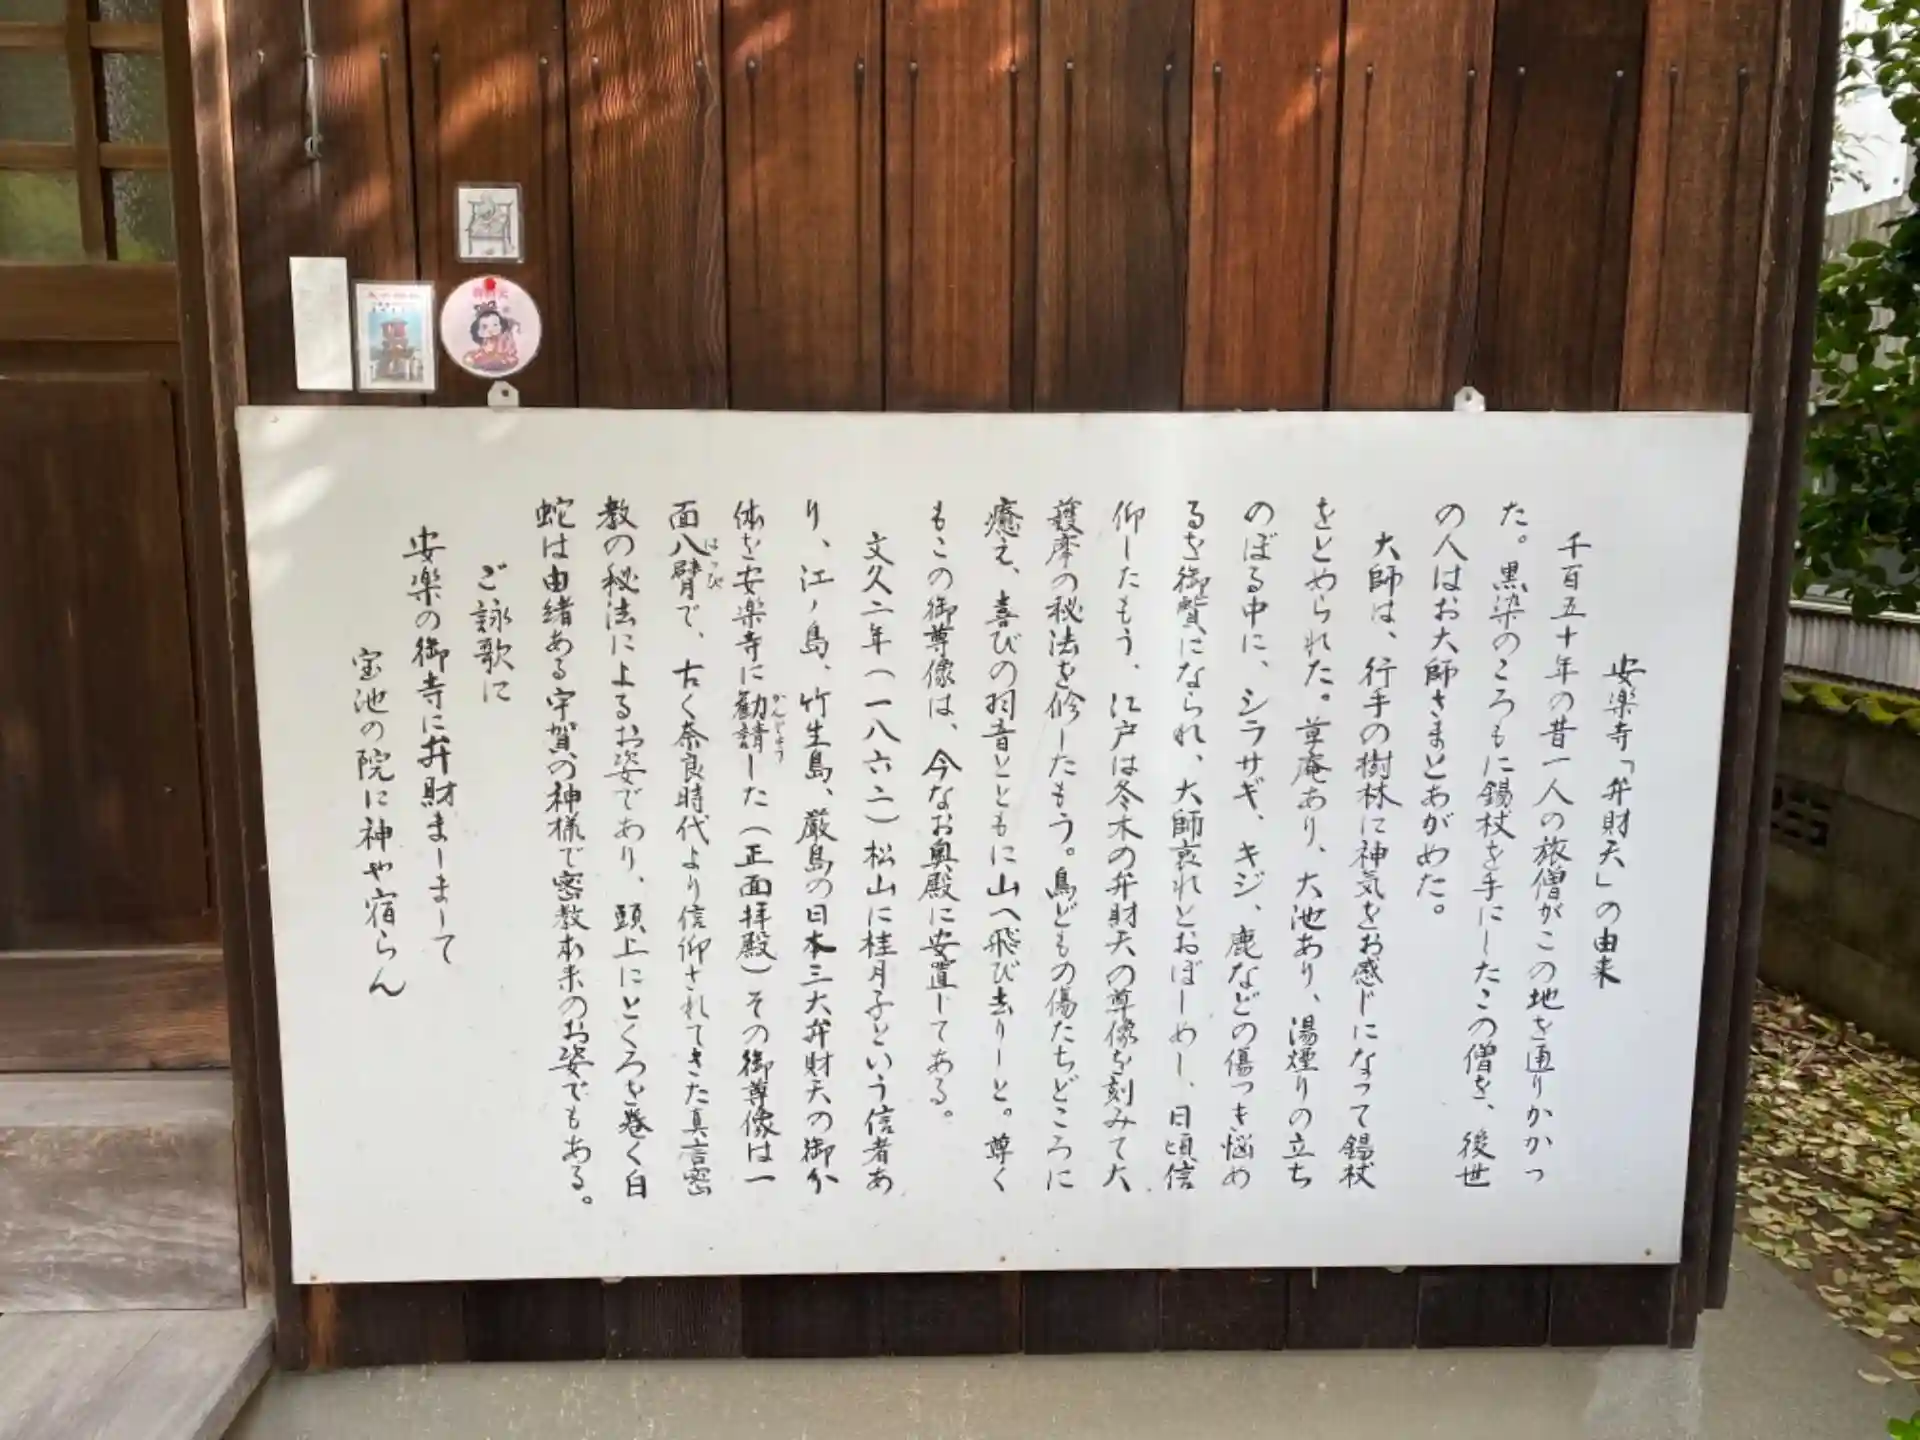 安楽寺「弁財天」の由来
千百五十年の昔一人の旅僧がこの地を通りかかっ
た。黒染のころもに錫杖を手にしたこの僧を、後世
の人はお大師さまとあがめた。
大師は、行手の樹林に神気をお感じになって錫杖
をとめられた。草庵あり、大池あり、湯煙りの立ち
のぼる中に、シラサギ、キジ、鹿などの傷つき悩め
るを御覧になられ、大師哀れとおぼしめし、日頃信
仰したもう、江戸は冬木の弁財天の尊像を刻みて大
護摩の秘法を修したもう。鳥どもの傷たちどころに
癒え、喜びの羽音とともに山へ飛び去りしと。尊く
もこの御尊像は、今なお奥殿に安置してある。
文久二年(一八六二)松山に桂月子という信者あ
り、江ノ島、竹生島、厳島の日本三大弁財天の御分
体を安楽寺に勧請した(正面拝殿)その御尊像は一
かんじょう
面八臂で、古く奈良時代より信仰されてきた真言密
はっぴ
教の秘法に上るお姿であり、頭上にとぐろを巻く白
蛇は由緒ある宇賀の神様で密教本来のお姿でもある。
ご詠歌に
安楽の御寺に弁財ましまして
宝池の院に神や宿らん